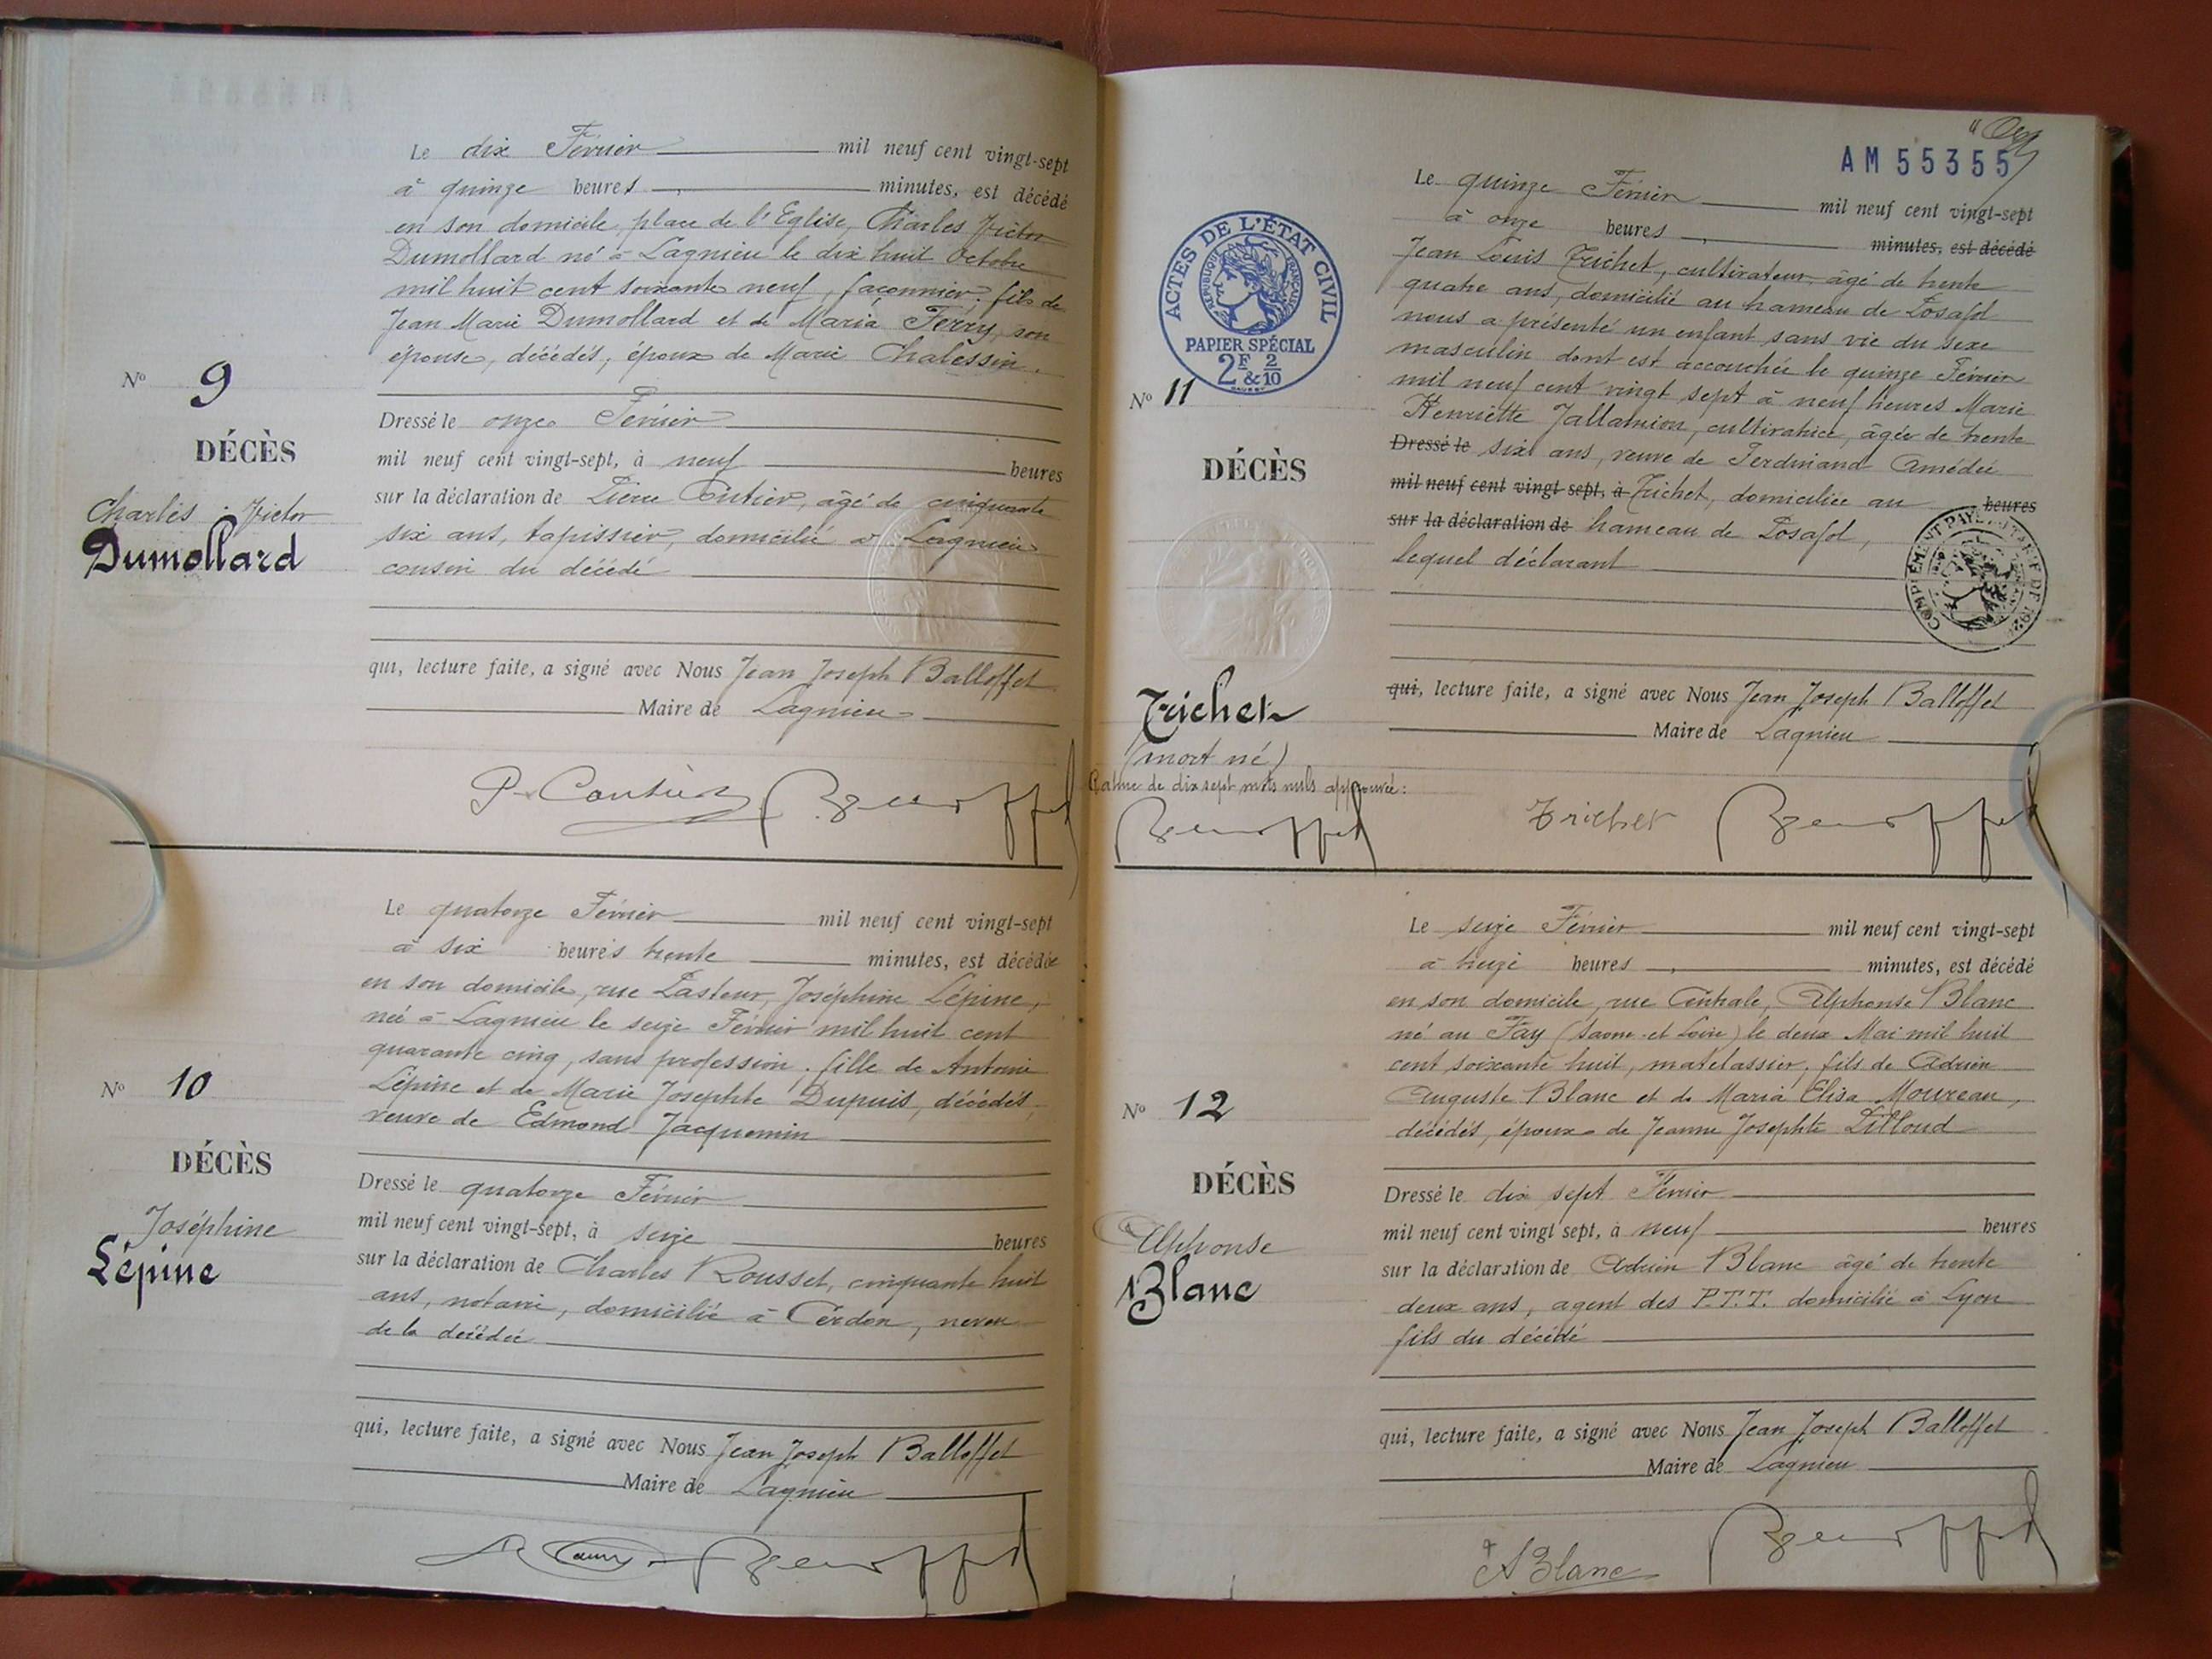 Le dix Février mil neuf cent vingt-sept
à quinze heures minutes, est décédé
en son domicile, place de l'Eglise, Charles Victor
Dumollard né à Lagnieu le dix huit Octobre
mil huit cent soixante neuf, façonnier, fils de
Jean Marie Dumollard et de Maria Ferry, son
épouse, décédés, époux de Marie Chalessin.
N° 9
DÉCÈS
Charles Victor
Dumollard
Dressé le onze Février
mil neuf cent vingt-sept, à neuf heures
sur la déclaration de Pierre âgé de cinquante
six ans, tapissier, domicilié à Lagnieu
cousin du décédé
qui, lecture faite, a signé avec Nous Jean Joseph Balloffet
Maire de Lagnieu
Le quatorze Février mil neuf cent vingt-sept
à six heures trente minutes, est décédée
en son domicile, rue Pasteur, Joséphine Lépine,
née à Lagnieu le seize Février mil huit cent
quarante cinq, sans profession, fille de Antoine
Lépine et de Marie Josephte Dupuis, décédés,
veuve de Edmond Jacquemin
N° 10
DÉCÈS
Joséphine
Lépine
Dressé le quatorze Février
mil neuf cent vingt-sept, à seize heures
sur la déclaration de Charles Rousset, cinquante huit
ans, notaire, domicilié à Cerdon, neveu
de la décédée
qui, lecture faite, a signé avec Nous Jean Joseph Balloffet
Maire de Lagnieu
AM 55355
ACTES DE L'ÉTAT CIVIL
RÉPUBLIQUE FRANÇAISE
PAPIER SPÉCIAL
2F & 2/10
Le quinze Février mil neuf cent vingt-sept
à onze heures minutes, est décédé
Jean Louis Trichet, cultivateur, âgé de trente
quatre ans, domicilié au hameau de Posafol
nous a présenté un enfant sans vie du sexe
masculin dont est accouchée le quinze Février
mil neuf cent vingt sept à neuf heures Marie
Henriette Jallamion, cultivatrice, âgée de trente
Dressé le six ans, veuve de Ferdinand Amédée
mil neuf cent vingt sept, à Trichet, domiciliée au heures
sur la déclaration de hameau de Posafol,
lequel déclarant
N° 11
DÉCÈS
Trichet
(mort né)
Rature de dix sept mots nuls approuvée:
qui, lecture faite, a signé avec Nous Jean Joseph Balloffet
Maire de Lagnieu
Trichet
Le seize Février mil neuf cent vingt-sept
à treize heures minutes, est décédé
en son domicile, rue Centrale, Alphonse Blanc
né au Fay (Saone et Loire) le deux Mai mil huit
cent soixante huit, matelassier, fils de Adrien
Auguste Blanc et de Maria Elisa Moureau,
décédés, époux de Jeanne Josephte Pilloud
N° 12
DÉCÈS
Alphonse
Blanc
Dressé le dix sept Février
mil neuf cent vingt sept, à neuf heures
sur la déclaration de Adrien Blanc âgé de trente
deux ans, agent des P.T.T. domicilié à Lyon
fils du décédé
qui, lecture faite, a signé avec Nous Jean Joseph Balloffet
Maire de Lagnieu
A Blanc